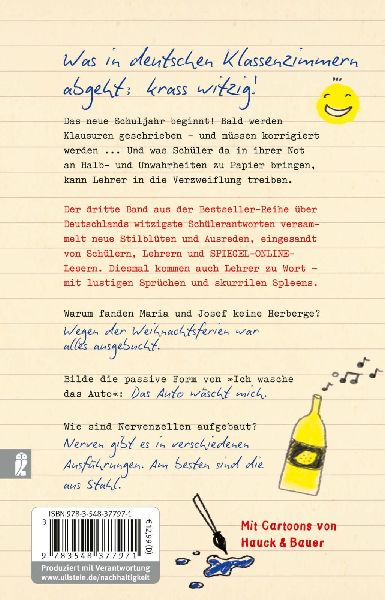 Was in deutschen Klassenzimmern
abgeht: krass witzig!
Das neue Schuljahr beginnt! Bald werden
Klausuren geschrieben – und müssen korrigiert
werden ... Und was Schüler da in ihrer Not
an Halb- und Unwahrheiten zu Papier bringen,
kann Lehrer in die Verzweiflung treiben.
Der dritte Band aus der Bestseller-Reihe über
Deutschlands witzigste Schülerantworten versam-
melt neue Stilblüten und Ausreden, eingesandt
von Schülern, Lehrern und SPIEGEL-ONLINE-
Lesern. Diesmal kommen auch Lehrer zu Wort –
mit lustigen Sprüchen und skurrilen Spleens.
Warum fanden Maria und Josef keine Herberge?
Wegen der Weihnachtsferien war
alles ausgebucht.
Bilde die passive Form von »Ich wasche
das Auto«: Das Auto wäscht mich.
Wie sind Nervenzellen aufgebaut?
Nerven gibt es in verschiedenen
Ausführungen. Am besten sind die
aus Stahl.
ISBN 978-3-548-37797-1
9 783548 377971
Produziert mit Verantwortung
www.ullstein.de/nachhaltigkeit
Mit Cartoons von
Hauck & Bauer